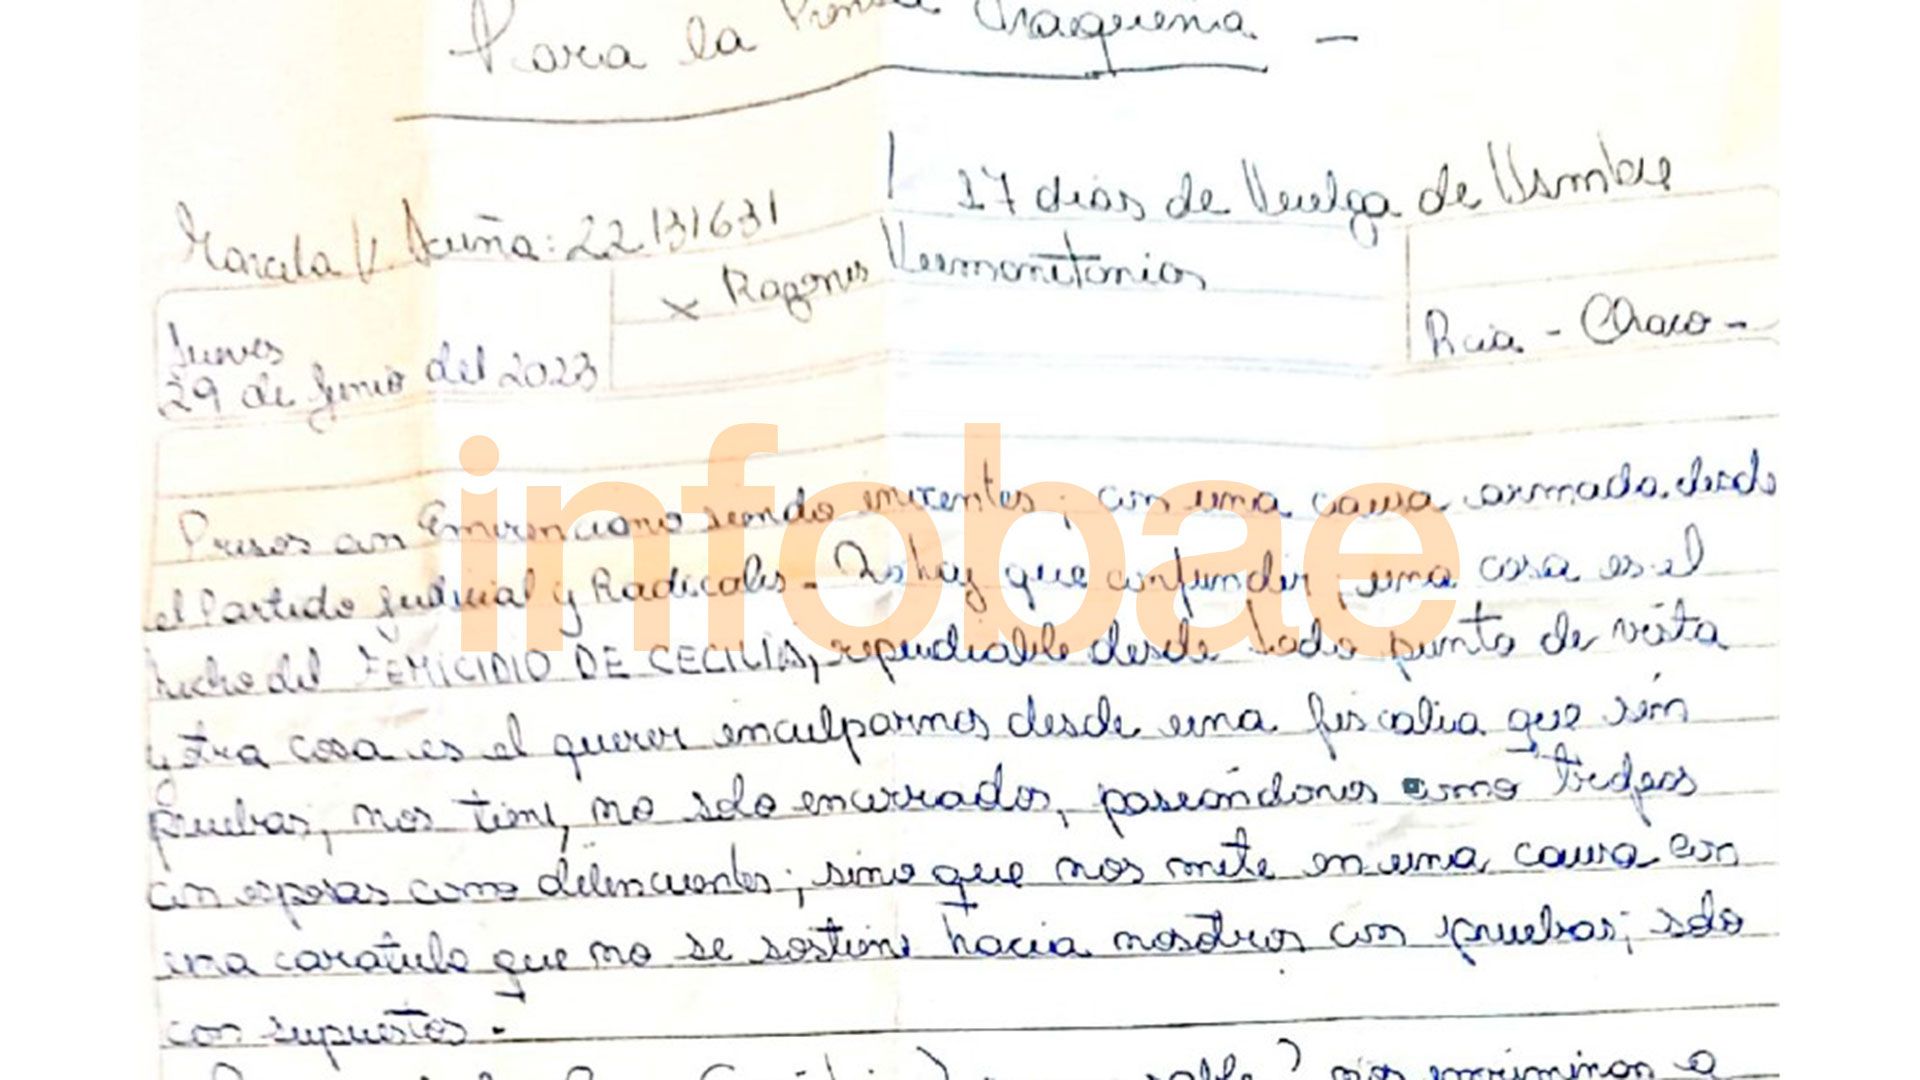 Para la Prensa Chaqueña -
17 días de Huelga de Hambre
Marcela V. Acuña: 22131631
x Razones Humanitarias
Jueves
29 de Junio del 2023
Rcia - Chaco -
infobae
Presos con Emerenciano siendo inocentes; con una causa armada desde
el Partido Judicial y Radicales - No hay que confundir, una cosa es el
hecho del FEMICIDIO DE CECILIA, repudiable desde todo punto de vista
y otra cosa es el querer inculparnos desde una fiscalia que sin
pruebas, nos tiene, no solo encerrados, paseándonos como
con esposas como delincuentes; sino que nos mete en una causa con
una caratula que no se sostiene hacia nosotros con pruebas; solo
con supuestos.-
nos incriminan a